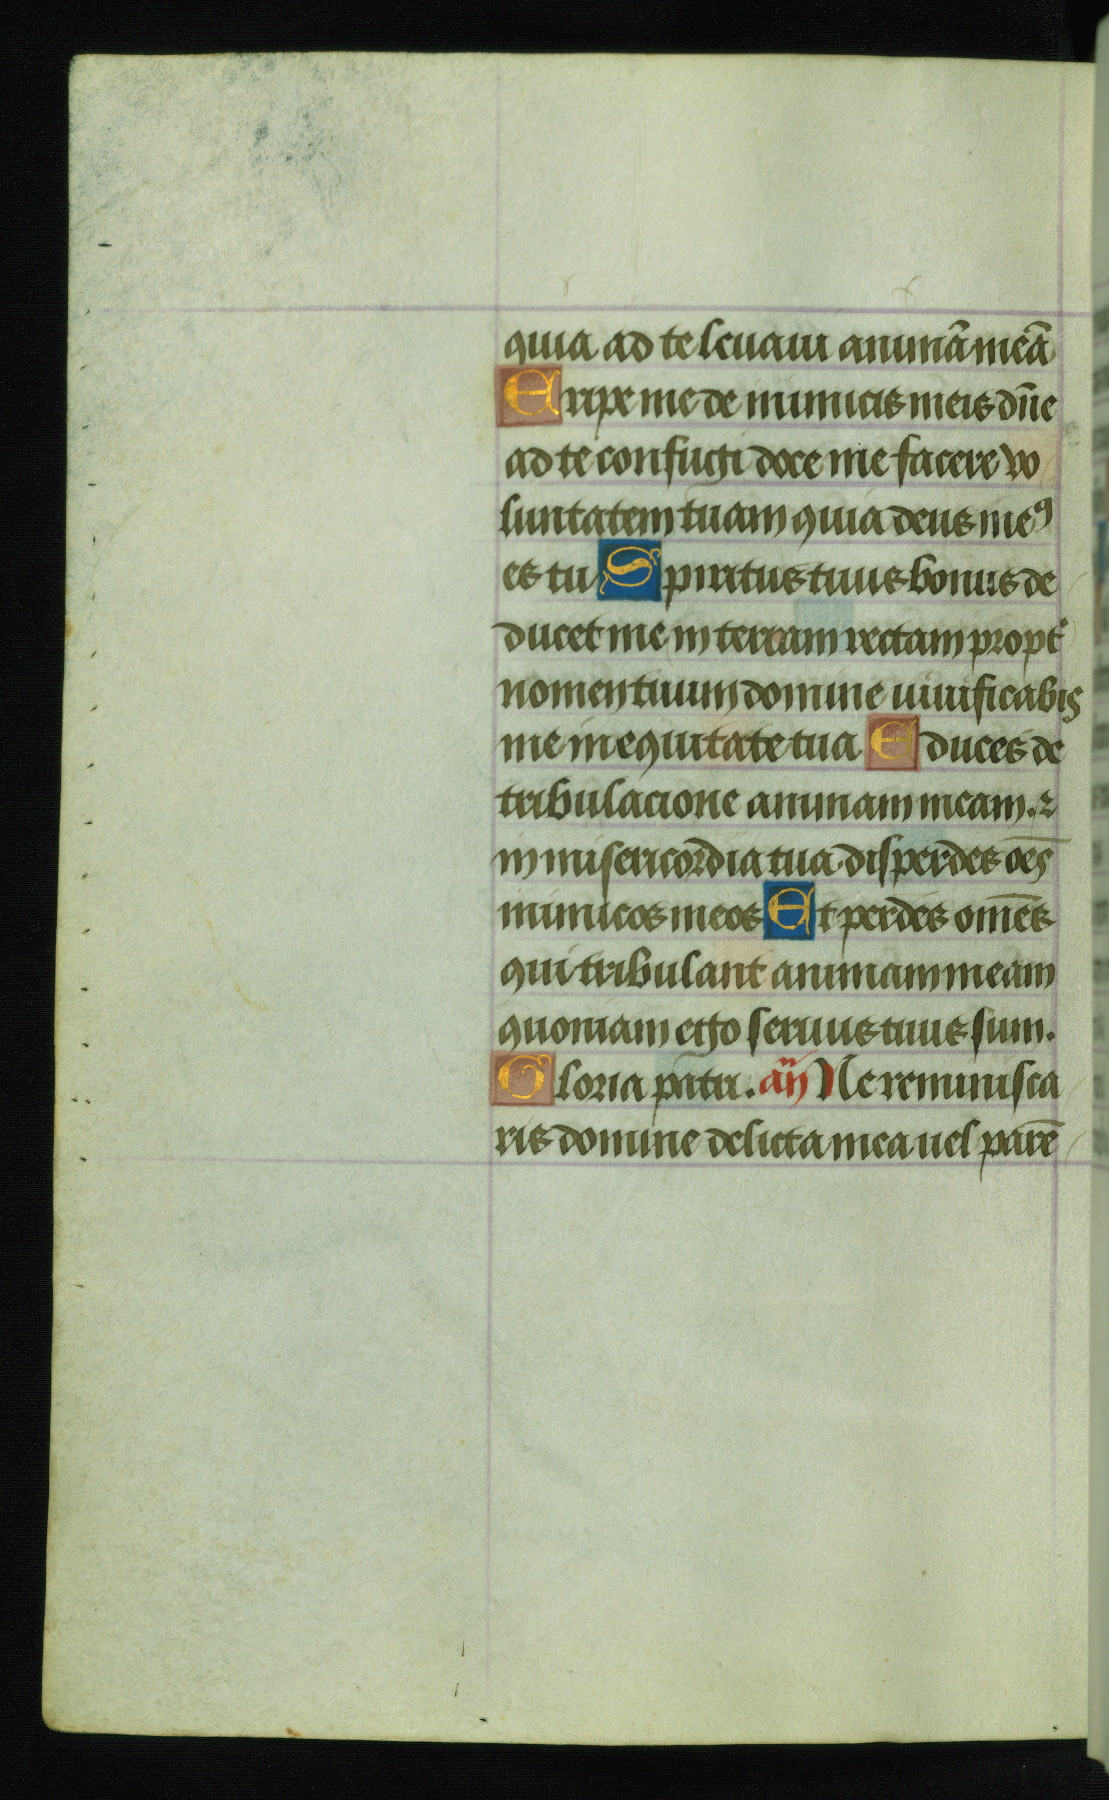 quia ad te leuaui animā meā
Eripe me de inimicis meis dn̄e
ad te confugi doce me facere vo
luntatem tuam quia deus meꝰ
es tu Spiritus tuus bonus de
ducet me in terram rectam propt᷑
nomen tuum domine uiuificabis
me in equitate tua Educes de
tribulacione animam meam. ⁊
in misericordia tua disperdes oēs
inimicos meos Et perdes om̄es
qui tribulant animam meam
quoniam ego seruus tuus sum.
Gloria patri. an̄ Ne reminisca
ris domine delicta mea uel parē